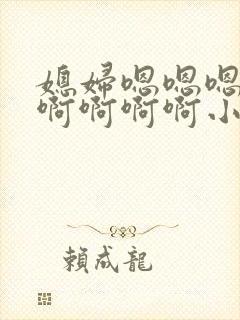 媳婦嗯嗯嗯
啊啊啊啊小
賴成龍